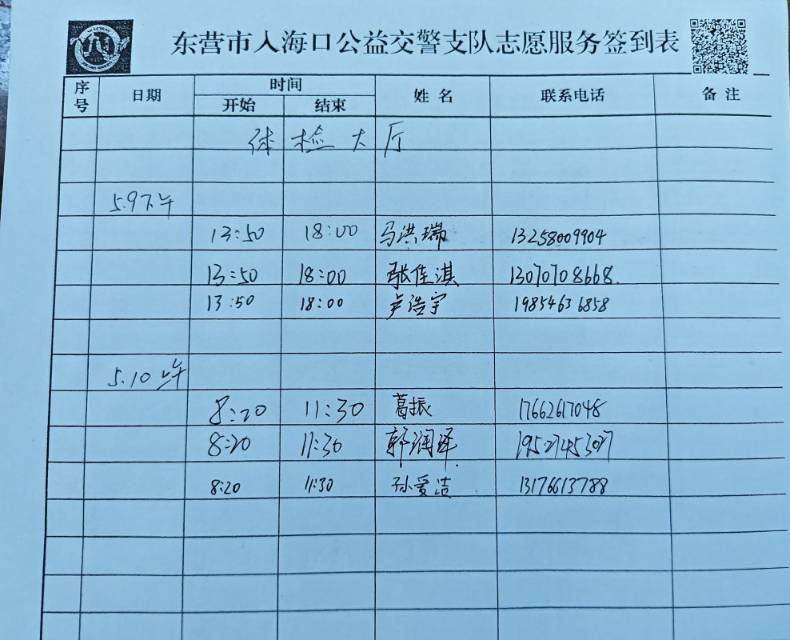 东营市入海口公益交警支队志愿服务签到表
序号 日期 时间 姓名 联系电话 备注
开始 结束
体检大厅
5.9下午
13:50 18:00 马洪瑞 13258009904
13:50 18:00 张佳淇 13070708668.
13:50 18:00 卢浩宇 19854636858
5.10上午
8:20 11:30 葛振 17662617048
8:20 11:30 郭润泽
8:20 11:30 孙爱洁 13176613788